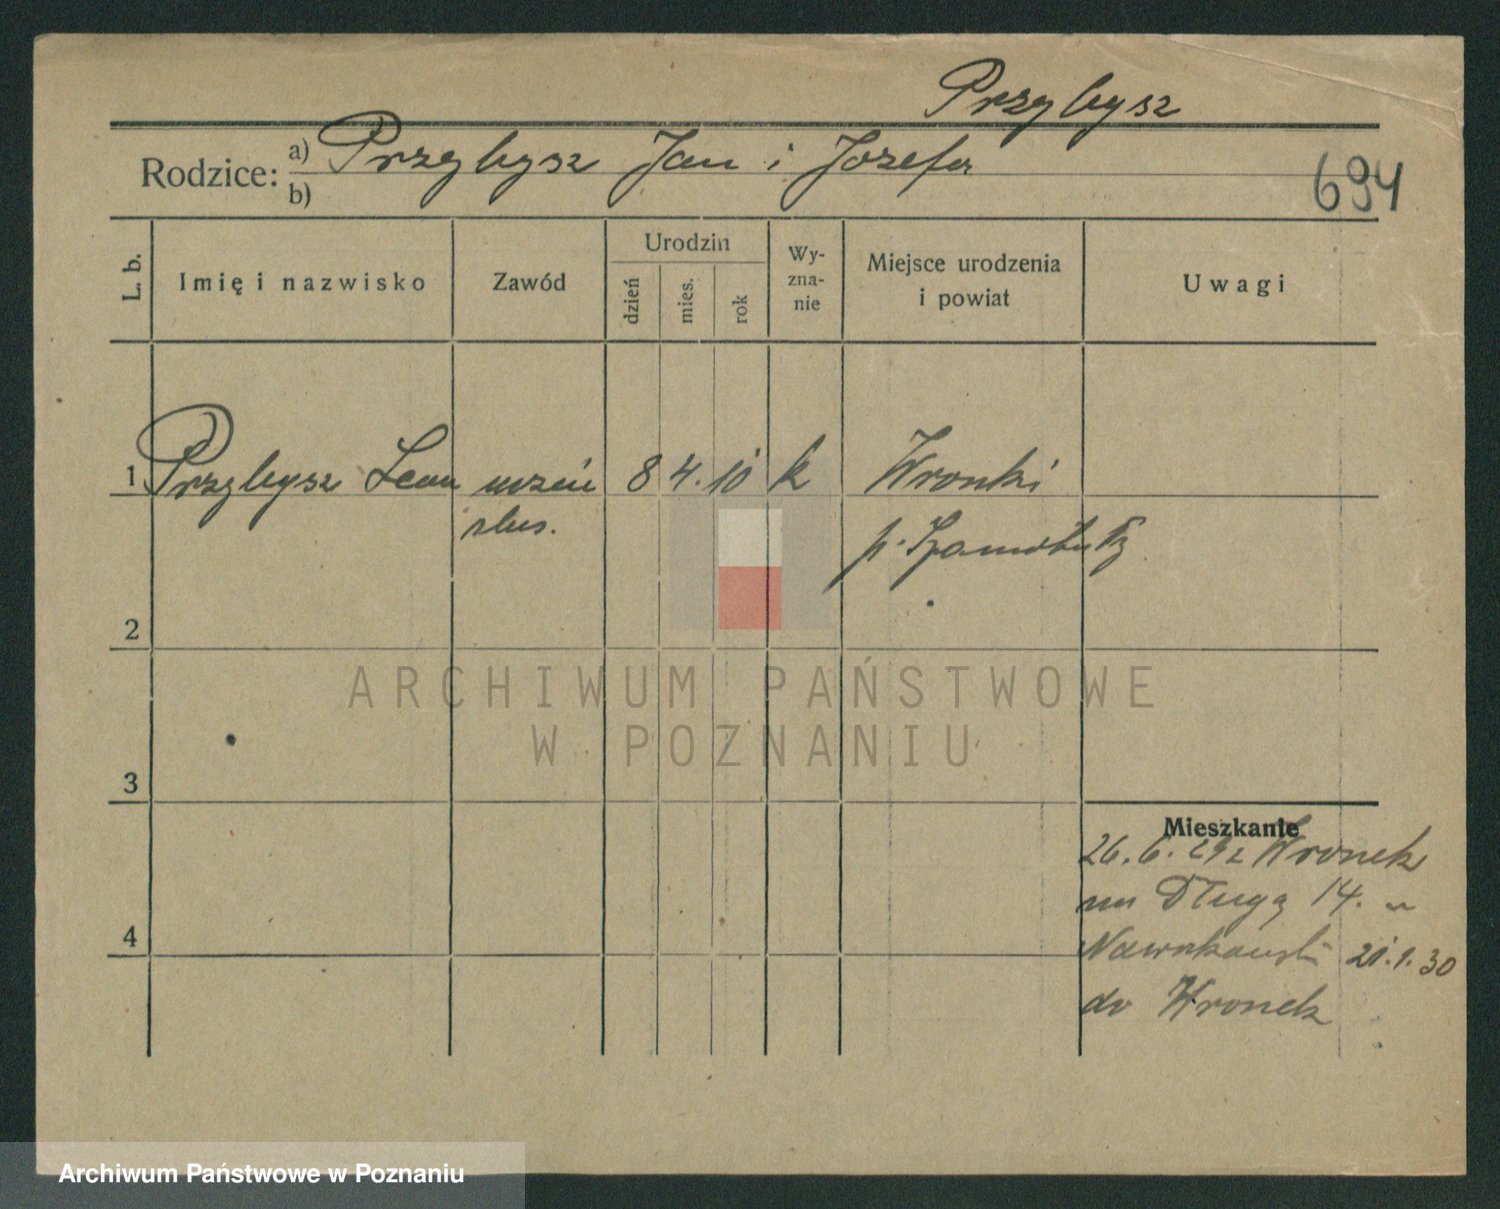 Przybysz
Rodzice: a) Przybysz Jan i Józefa
b)
694
L. b.
Imię i nazwisko
Zawód
Urodzin
dzień
mies.
rok
Wy-
zna-
nie
Miejsce urodzenia
i powiat
Uwagi
1 Przybysz Leon uczeń 8 4. 10 k Wronki
ślus. p. Szamotuły
2
3
4
Mieszkanie
26. 6. 29 z Wronek
na Długą 14. u
21.1.30
do Wronek
ARCHIWUM PAŃSTWOWE
W POZNANIU
Archiwum Państwowe w Poznaniu